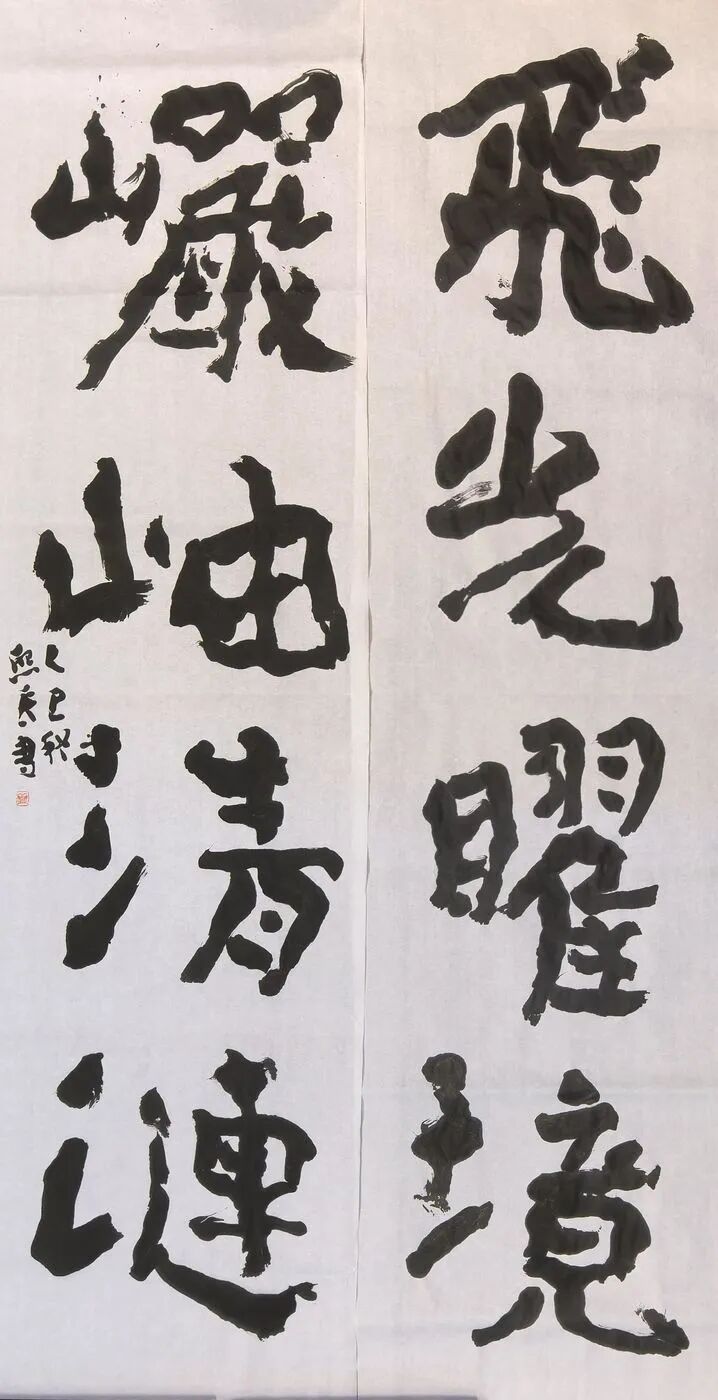 飛光曜境
巘岫清漣
乙巳秋
熙
書